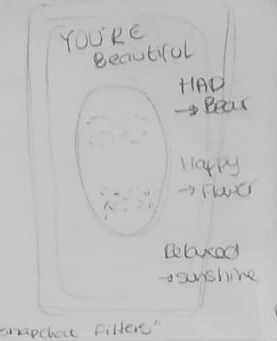 YOU'RE
Beautiful
MAD
→ Bear
Happy
→ Flower
Relaxed
→ sunshine
snapchat filters"